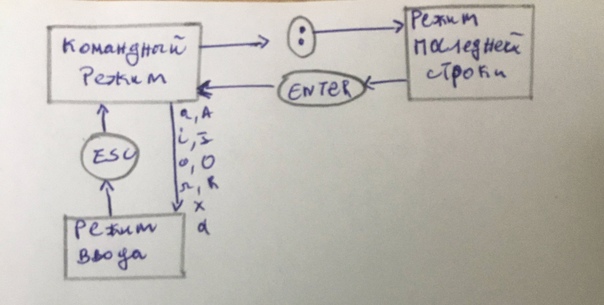 Командный
Режим
:
Режим
последней
строки
ENTER
ESC
a, A
i, I
o, O
r, R
x
d
Режим
ввода